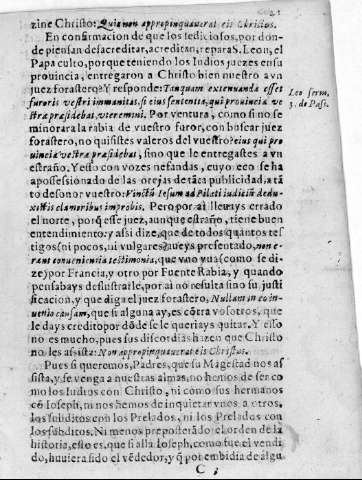 zine Christo: Quia non appropinquauerat eis Christus.
En confirmacion de que los sediciosos, por don-
de piensan desacreditar, acreditan, repara S. Leon, el
Papa culto, porque teniendo los Indios juezes en su
prouincia, entregaron a Christo bien nuestro a vn
juez forastero? Y responde: Tanquam extenuanda esset
furoris vestri immanitas, si eius sententia, qui prouincia ve-
stra præsidebat, vteremini. Por ventura, como si no se
minorara la rabia de vuestro furor, con buscar juez
forastero, no quisistes valeros del vuestro? eius qui pro
uincia vestra præsidebat, sino que le entregastes a vn
estraño. Y esto con vozes nefandas, cuyo eco se ha
apossesionado de las orejas de tãta publicidad, a tã
to desonor vuestro: Vinctũ Iesum ad Pilati iuditiũ dedu-
xistis clamoribus improbis. Pero, por ai lleuays errado
el norte, porq̃ esse juez, aunque estraño, tiene buen
entendimiento: y assi dize, que de todos quantos tes
tigos (ni pocos, ni vulgares) aueys presentado, non e-
rant conuenientia testimonia, que vno vaya (como se di-
ze) por Francia, y otro por Fuente Rabia, y quando
pensabays deslustrarle, por ai no resulta sino su justi
ficacion, y que diga el juez forastero, Nullam inco in-
uenio causam, que si alguna ay, es cõtra vosotros, que
le days credito por dõde se le queriays quitar. Y esto
no es mucho, pues sus discordias hazen que Christo
no les assista: Non appropinquauerat eis Christus.
Pues si queremos, Padres, que su Magestad nos as
sista, y se venga a nuestras almas, no hemos de ser co
mo los Iudios con Christo, ni como sus hermanos
cõ Ioseph, ni nos hemos de inquietar vnos a otros,
los subditos con los Prelados, ni los Prelados con
los subditos. Ni menos preposterādo el orden de la
historia, esto es, que si alla Ioseph, como fue el vendi
do, huuiera sido el vẽdedor, y q̃ por embidia de algu
C
Leo serm.
3. de Pasi.